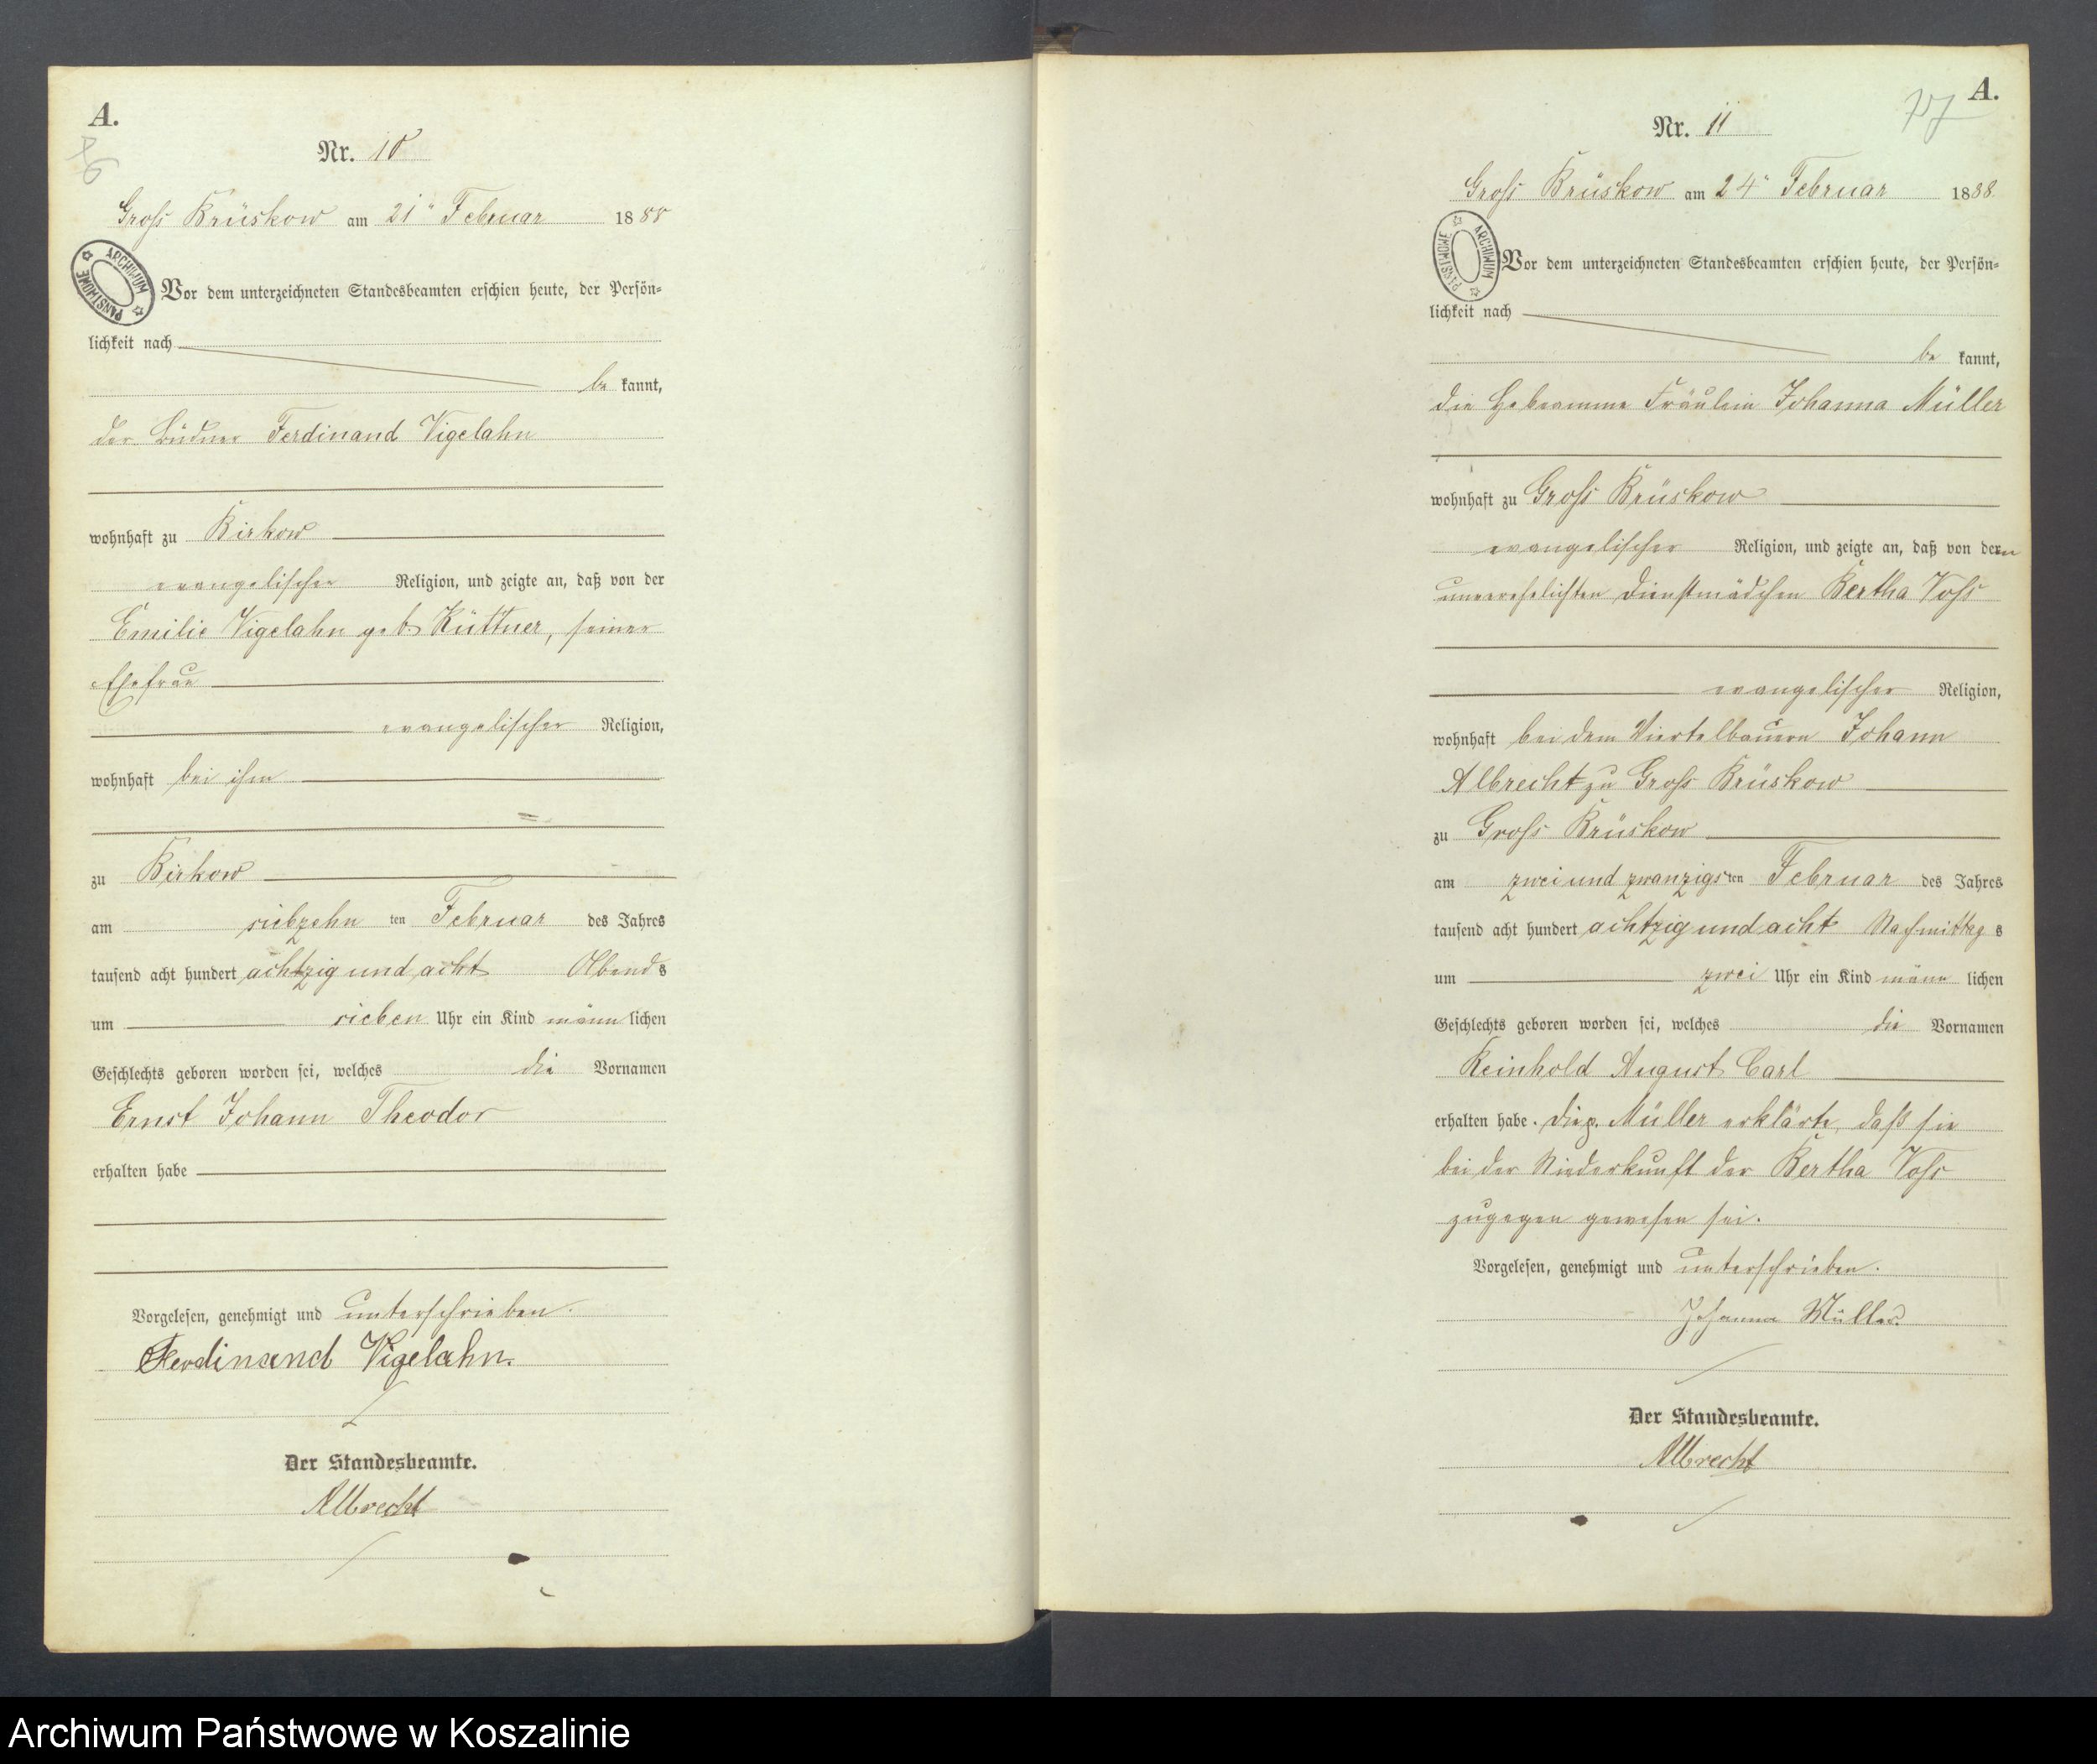 A.
76
Nr. 10
Groß Brüskow am 21ⁿ Februar 1888
ARCHIWUM PAŃSTWOWE
Vor dem unterzeichneten Standesbeamten erschien heute, der Persön-
lichkeit nach
be kannt,
der Büdner Ferdinand Vigelahn
wohnhaft zu Birkow
evangelischer Religion, und zeigte an, daß von der
Emilie Vigelahn geb. Küttner, seiner
Ehefrau
evangelischer Religion,
wohnhaft bei ihm
zu Birkow
am siebzehn ten Februar des Jahres
tausend acht hundert achtzig und acht Abend s
um sieben Uhr ein Kind männ lichen
Geschlechts geboren worden sei, welches die Vornamen
Ernst Johann Theodor
erhalten habe
Vorgelesen, genehmigt und unterschrieben.
Ferdinand Vigelahn.
Der Standesbeamte.
Albrecht
A.
Nr. 11
Groß Brüskow am 24ⁿ Februar 1888.
ARCHIWUM PAŃSTWOWE
Vor dem unterzeichneten Standesbeamten erschien heute, der Persön-
lichkeit nach
be kannt,
die Hebeamme Fräulein Johanna Müller
wohnhaft zu Groß Brüskow
evangelischer Religion, und zeigte an, daß von dem
unverehelichten Dienstmädchen Bertha Voß
evangelischer Religion,
wohnhaft bei dem Viertelbauern Johann
Albrecht zu Groß Brüskow
zu Groß Brüskow
am zwei und zwanzigsten Februar des Jahres
tausend acht hundert achtzig und acht Nachmittag s
um zwei Uhr ein Kind männ lichen
Geschlechts geboren worden sei, welches die Vornamen
Reinhold August Carl
erhalten habe. Die p. Müller erklärte, daß sie
bei der Niederkunft der Bertha Voß
zugegen gewesen sei.
Vorgelesen, genehmigt und unterschrieben.
Johanna Müller.
Der Standesbeamte.
Albrecht
Archiwum Państwowe w Koszalinie